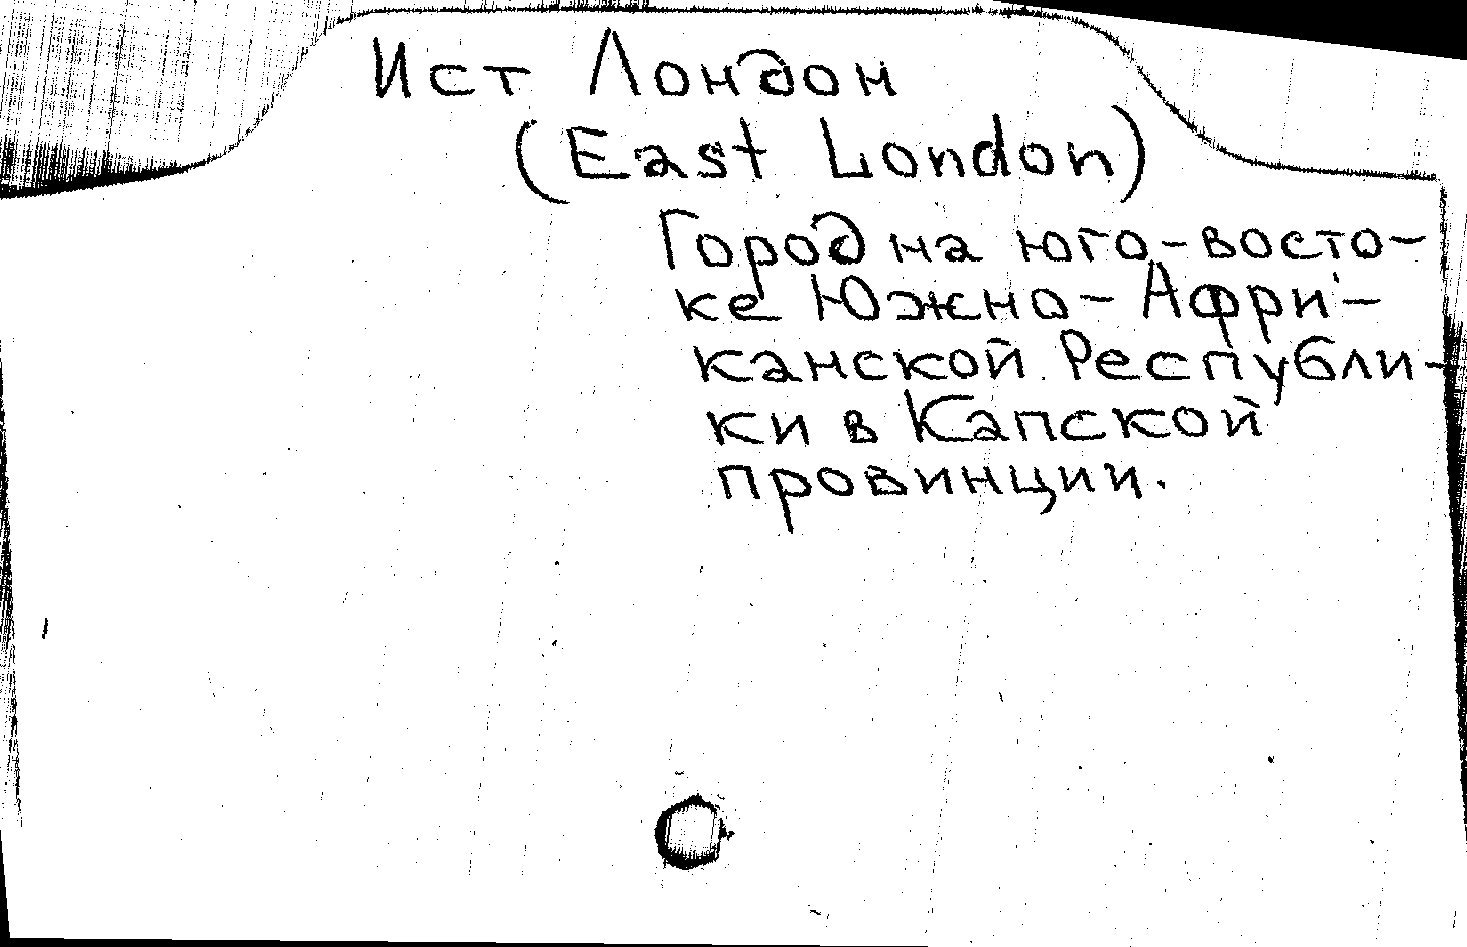 Ист Лондон
(East London)
Город на юго-восто-
ке Южно-Афри-
канской Республи-
ки в Капской
провинции.